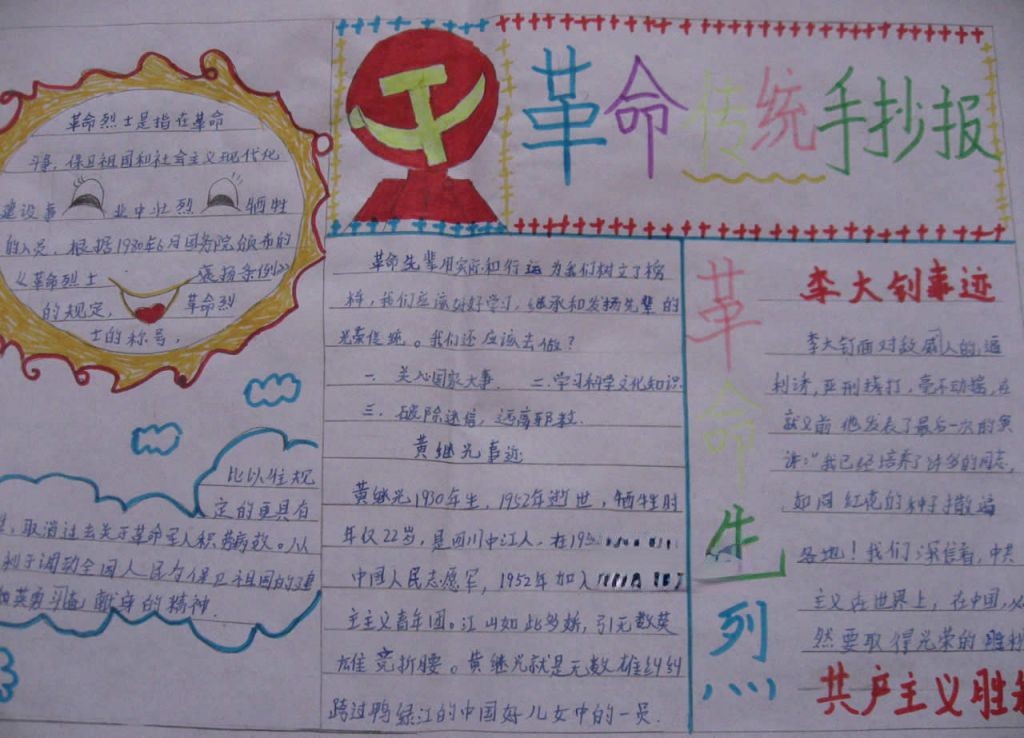 革命传统手抄报
革命烈士是指在革命
斗争,保卫祖国和社会主义现代化
建设事 业中壮烈 牺牲
的人员,根据1980年6月国务院颁布的
《革命烈士 褒扬条例》
的规定, 革命烈
士的称号,
比以往规
定的更具有
取消过去关于革命军人积劳病故。从
利于调动全国人民为保卫祖国的建
英勇斗 献身的精神.
革命先辈用实际和行 为我们树立了榜
样,我们应该好好学习,继承和发扬先辈的
光荣传统。我们还应该去做?
一. 关心国家大事. 二.学习科学文化知识
三. 破除迷信,远离邪教.
黄继光事迹
黄继光1930年生,1952年逝世,牺牲时
年仅22岁,是四川中江人.在195
中国人民志愿军,1952年加入
主主义青年团。江山如此多娇,引无数英
雄竞折腰。黄继光就是无数雄纠纠
跨过鸭绿江的中国好儿女中的一员.
革命先烈
李大钊事迹
李大钊面对敌 人的 逼
利诱,严刑拷打,毫不动摇,在
就义前他发表了最后一次的演
讲:"我已经培养了许多的同志,
如同红花的种子撒遍
各地!我们深信着,中共
主义在世界上,在中国,必
然要取得光荣的胜利
共产主义胜利